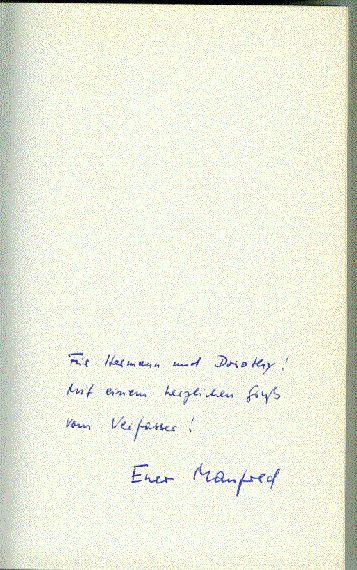 Für Hermann und Dorothy!
Mit einem herzlichen Gruß
vom Verfasser!
Euer Manfred